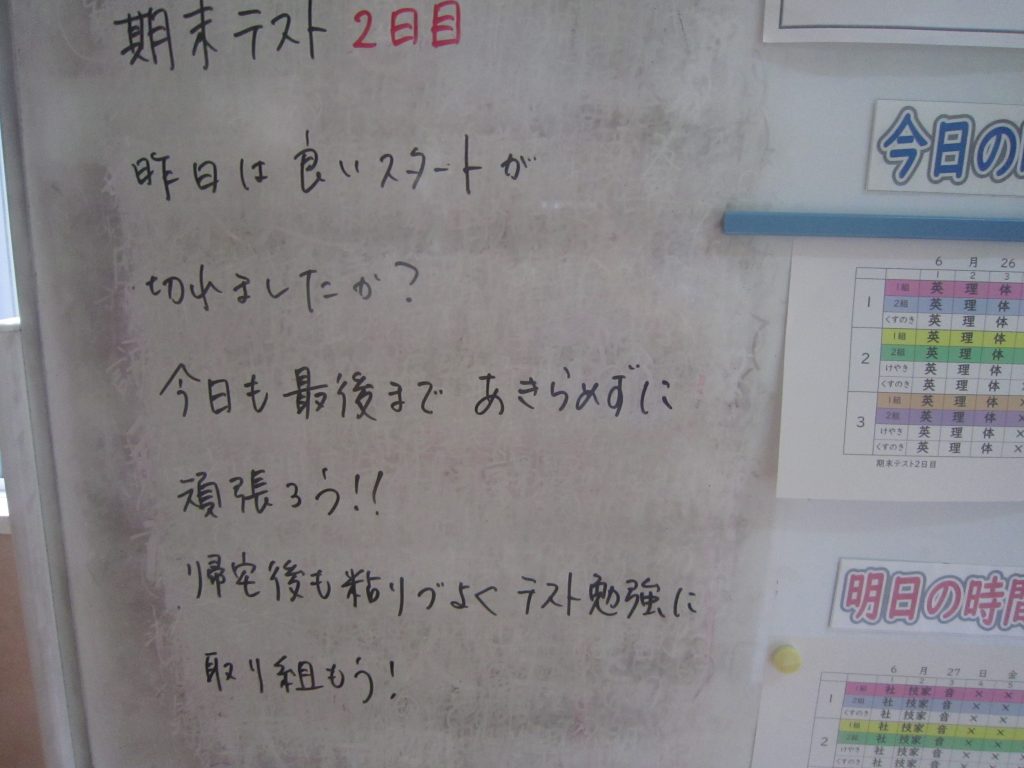 期末テスト 2日目
昨日は良いスタートが
切れましたか?
今日も最後まで あきらめずに
頑張ろう!!
帰宅後も粘りづよくテスト勉強に
取り組もう!
今日の
6 月 26
1 2 3
1 1組 英 理 体
2組 英 理 体
くすのき 英 理 体
2 1組 英 理 体
2組 英 理 体
けやき 英 理 体
くすのき 英 理 体
3 1組 英 理 体 ×
2組 英 理 体 ×
けやき 英 理 体 ×
くすのき 英 理 体 ×
期末テスト2日目
明日の時間
6 月 27 日 金
1 1組 社 技家 音 × ×
2組 社 技家 音 × ×
くすのき 社 技家 音 × ×
2 1組 社 技家 音 × ×
2組 社 技家 音 × ×
けやき 社 技家 音 × ×